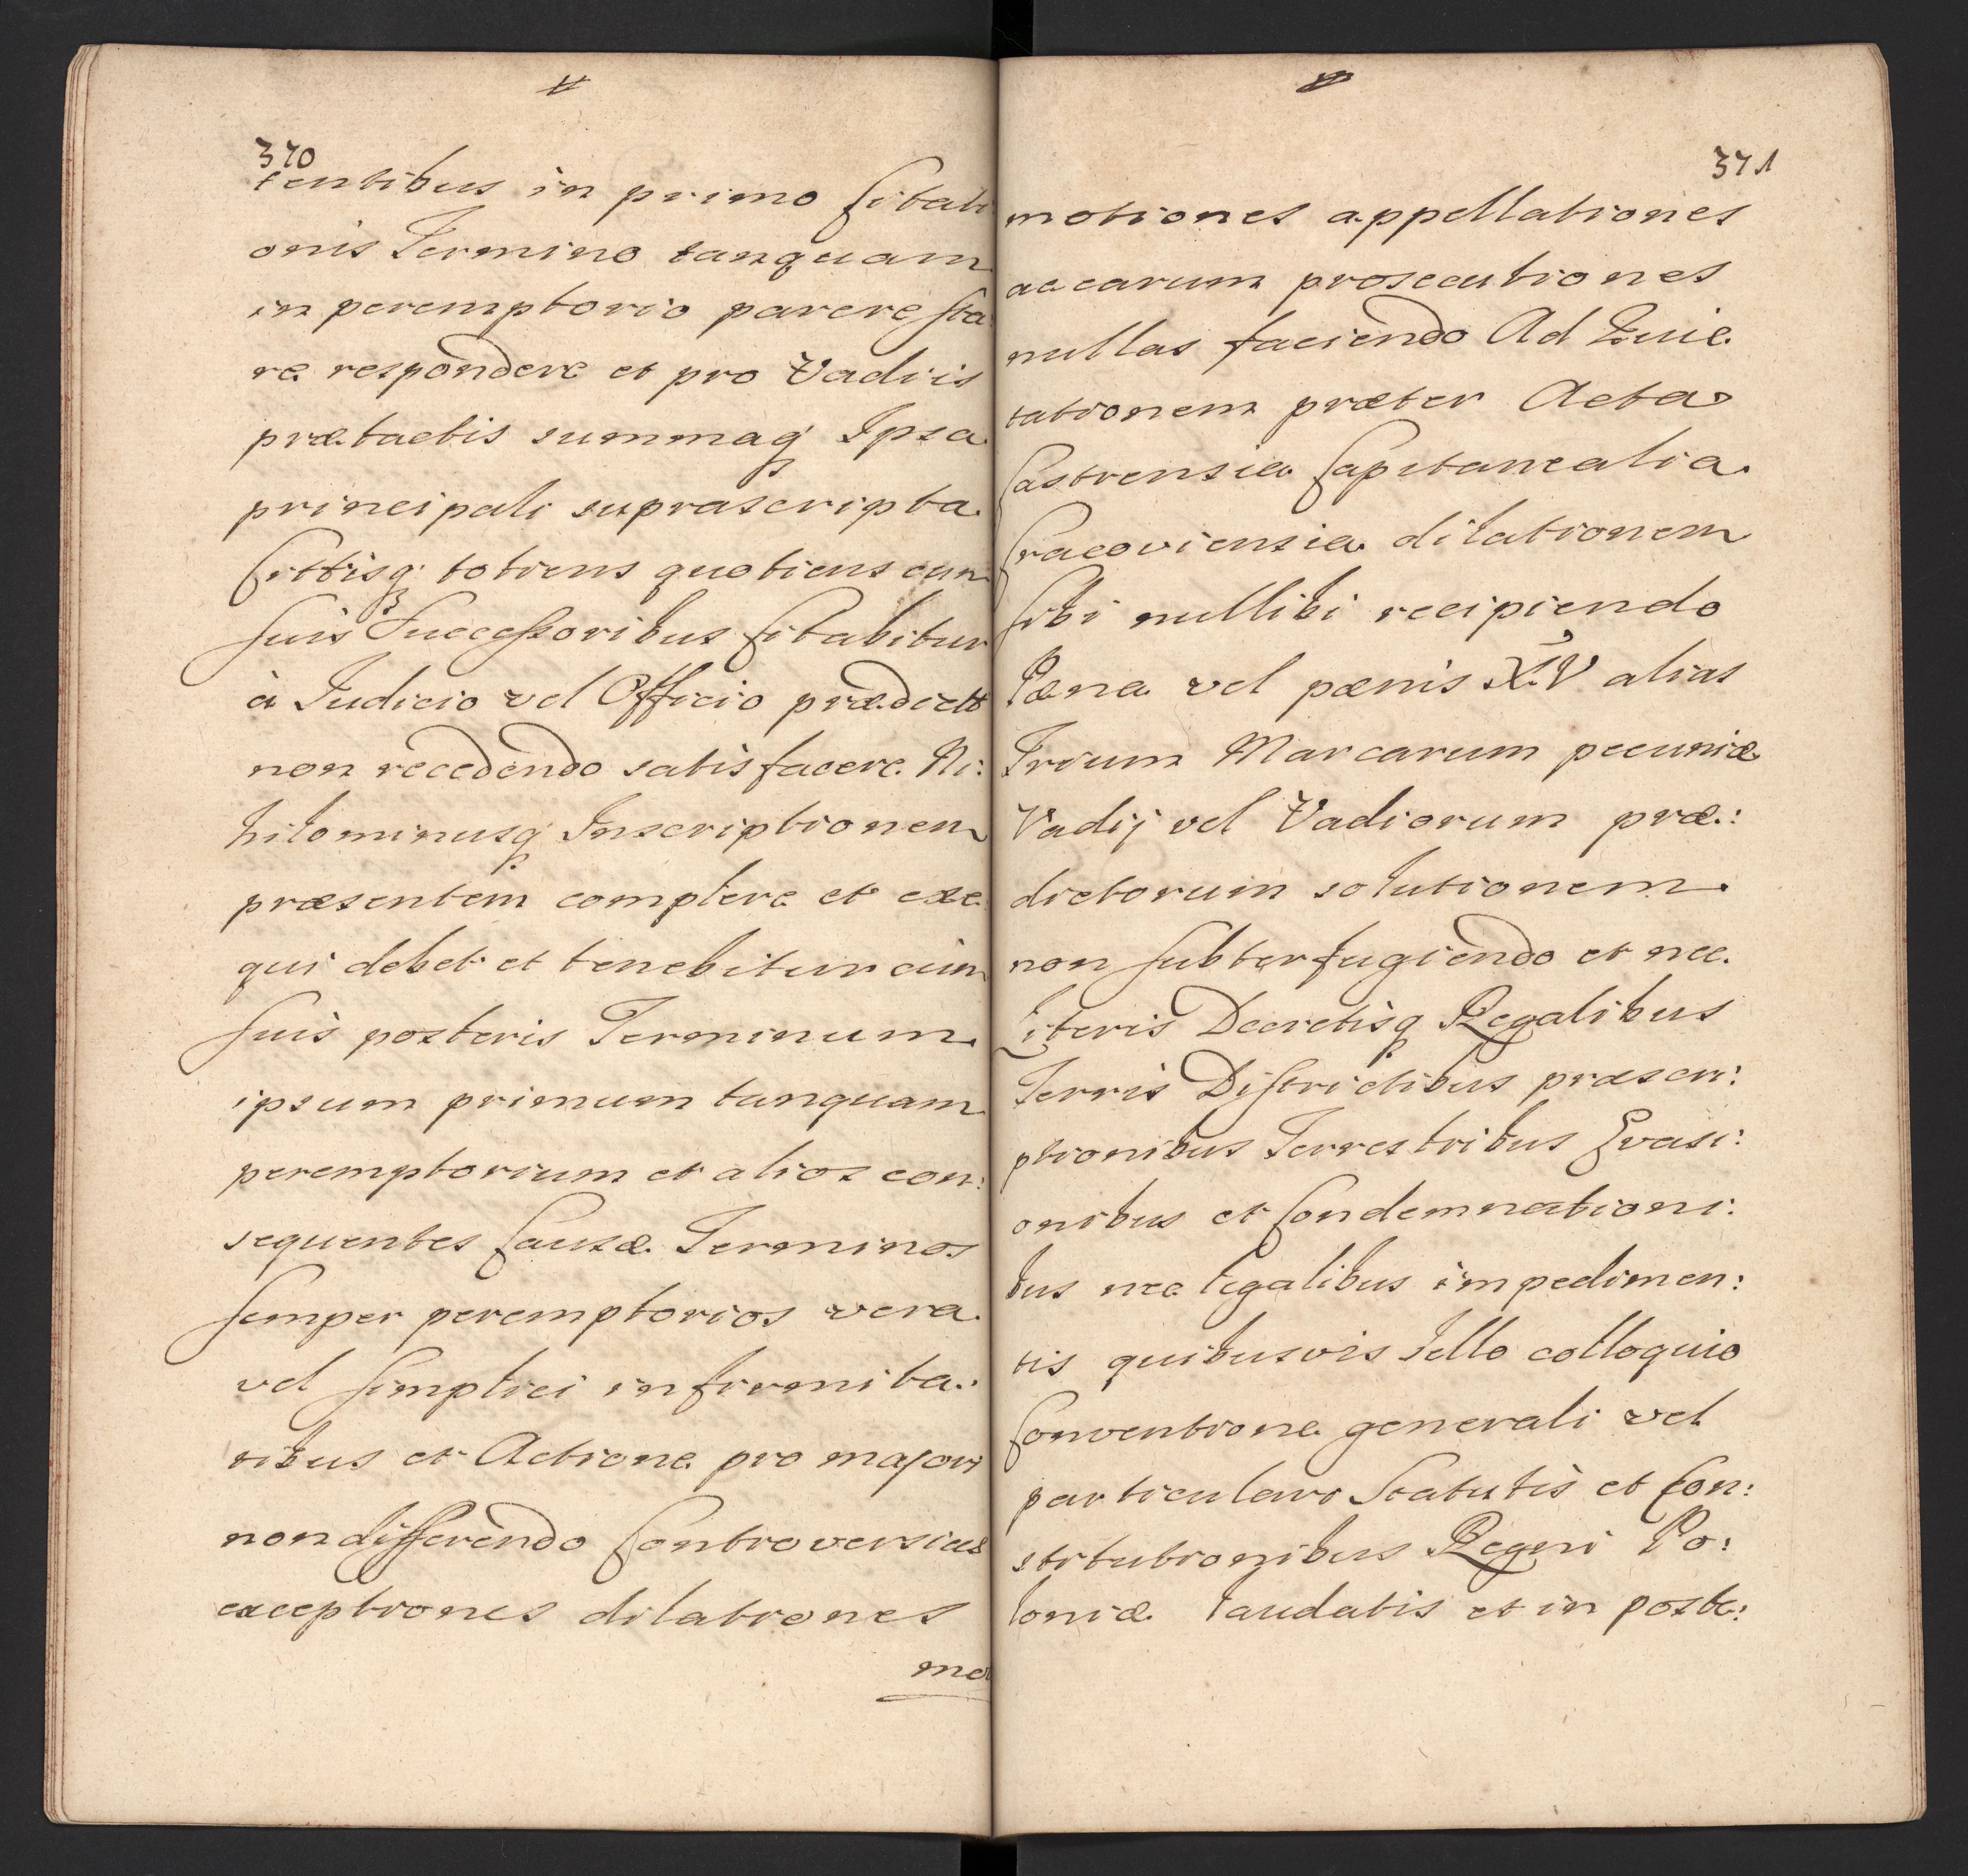 370
tentibus in primo Citati
onis Termino tanquam
in peremptorio parere sta
re respondere et pro Vadiis
prætactis summaq Ipsa
principali suprascripta
Cittisq totiens quotiens cum
suis Successoribus Citabitur
à Judicio vel Officio prædicto
non recedendo satisfacere Ni:
hilominusq Inscriptionem
præsentem complere et exe
qui debet et tenebitur cum
suis posteris Terminum
ipsum primum tanquam
peremptorium et alios con:
sequentes Causæ Terminos
semper peremptorios vera
vel simplici infirmita:
tibus et Actione pro majori
non differendo Controversias
exceptiones dilationes
mo
371
motiones appellationes
ac earum prosecutiones
nullas faciendo Ad Quie
tationem præter Acta
Castrensia Capitanealia
Cracoviensia dilationem
sibi nullibi recipiendo
Pæna vel pænis XIV alias
Trium Marcarum pecuniæ
Vadij vel Vadiorum præ:
dictorum solutionem
non subterfugiendo et nec
Literis Decretisq Regalibus
Terris Districtibus præscri:
ptionibus Terrestribus Evasi:
onibus et Condemnationi:
bus nec legalibus impedimen:
tis quibusvis bello colloquio
Conventione generali vel
particulari Statutis et Con:
stitutionibus Regni Po:
loniæ laudatis et in poste: